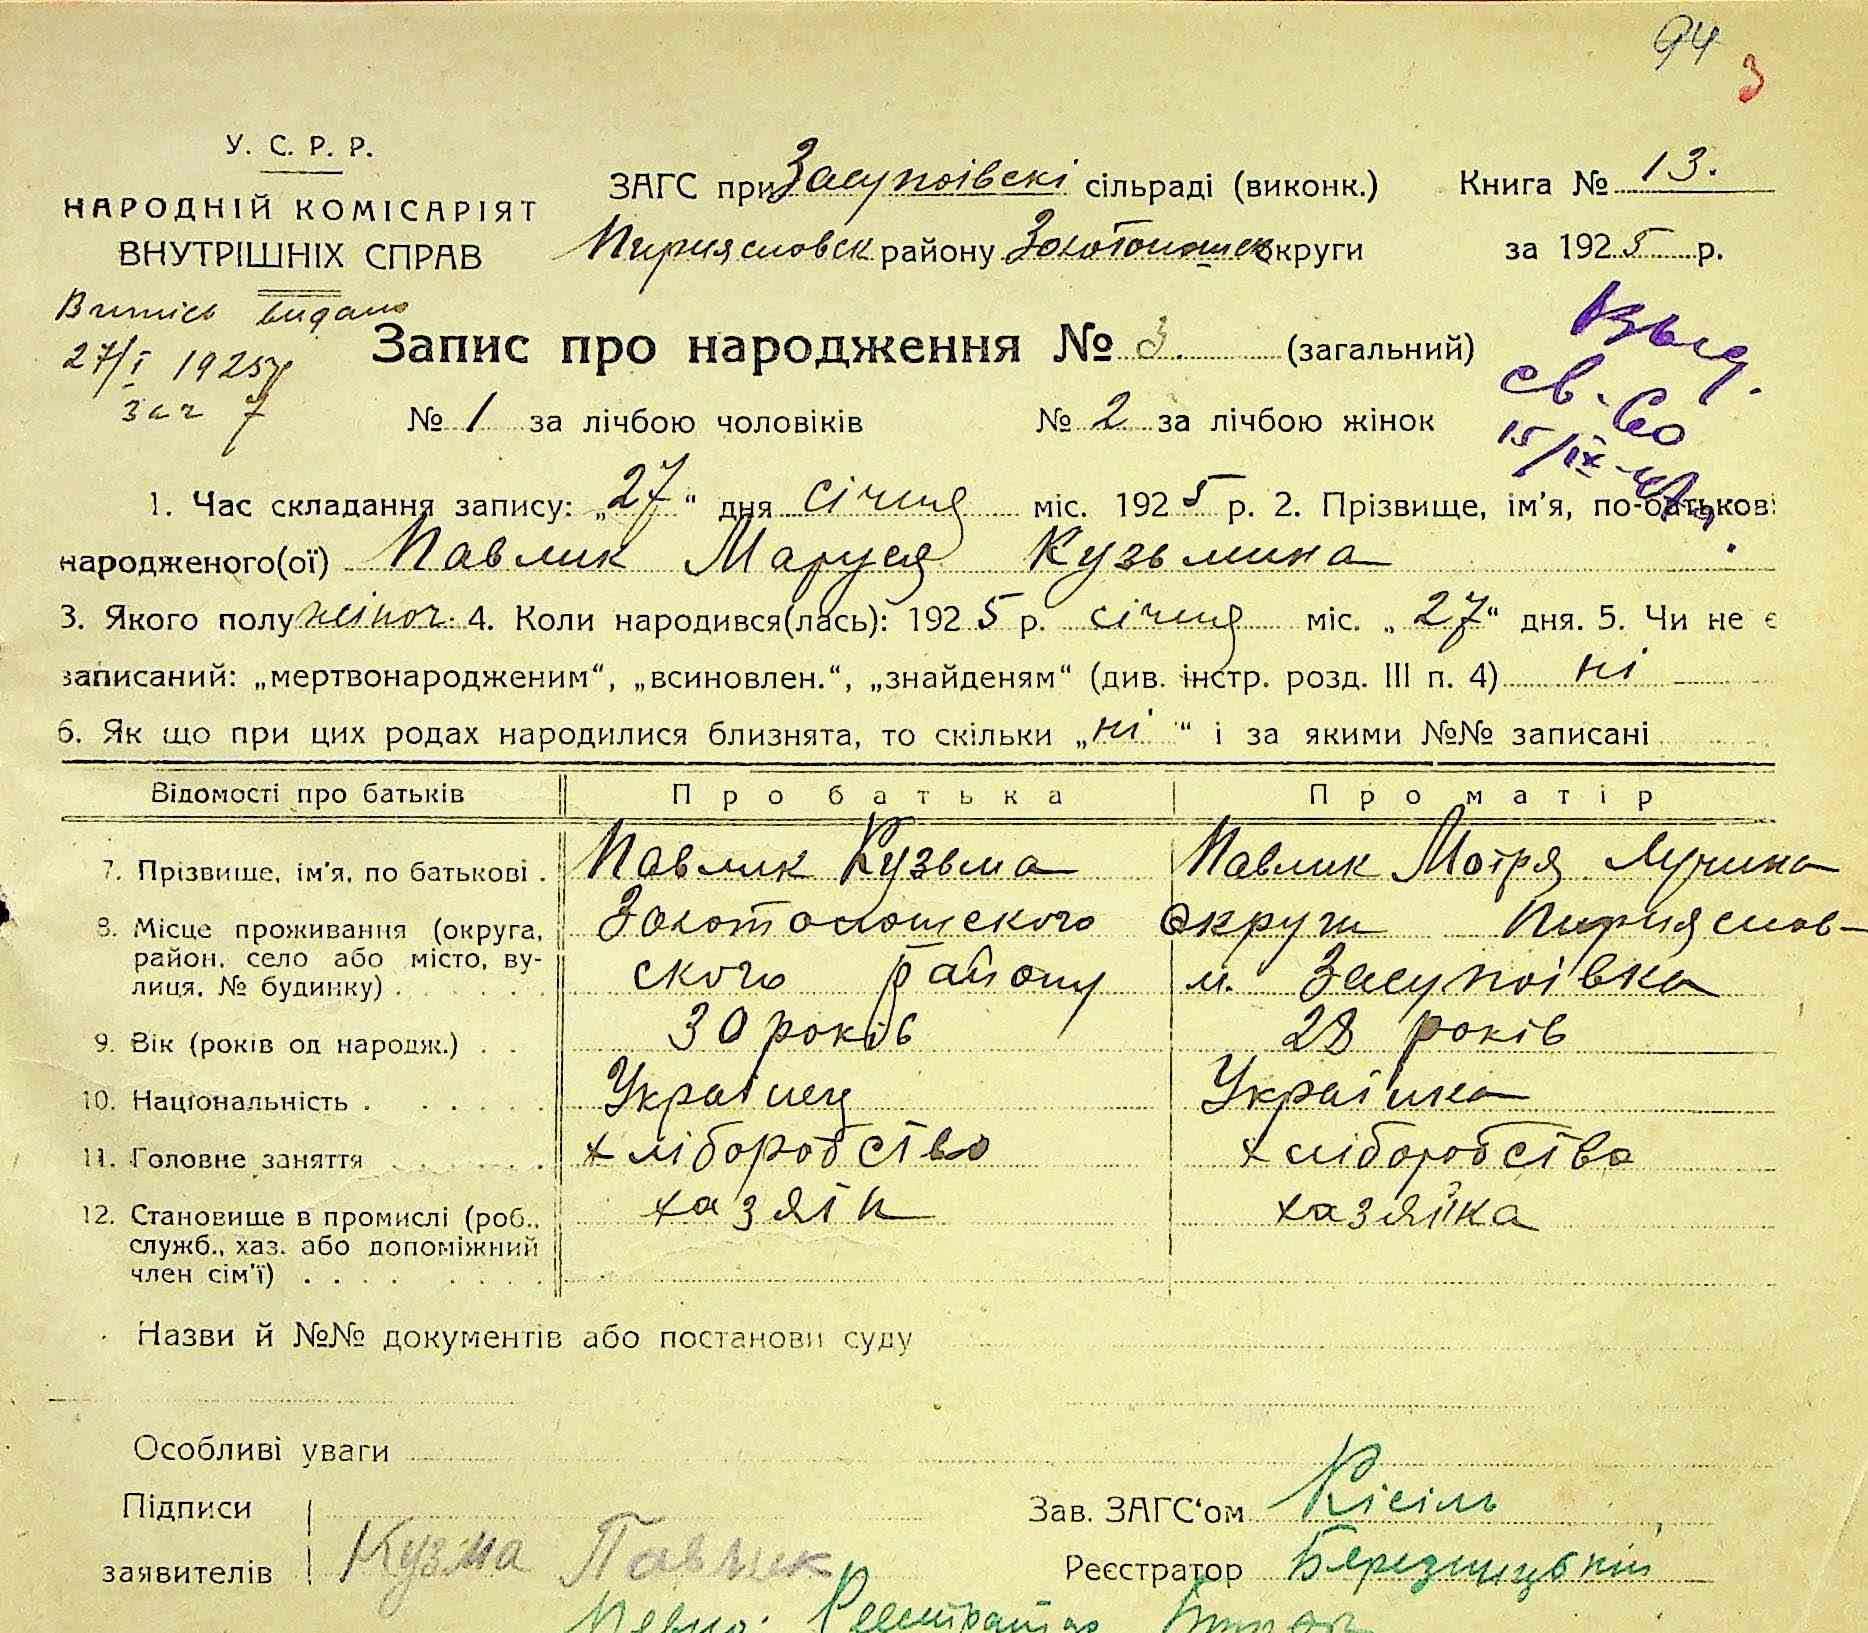 94 3
У. С. Р. Р.
НАРОДНІЙ КОМІСАРІЯТ
ВНУТРІШНІХ СПРАВ
ЗАГС при Засупоівскі сільраді (виконк.)
Книга № 13.
района Золотоношск округи
за 1925 р.
Витись видано
27/I 1925 р
зач 7
Запис про народження № 3. (загальний)
Выд.
св.
15/IX-
№ 1 за лічбою чоловіків № 2 за лічбою жінок
1. Час складання запису: „27“ дня січня міс. 1925 р. 2. Прізвище, ім'я, по-батькові
народженого(ої) Павлик Маруся Кузьмина
3. Якого полу жіноч. 4. Коли народився(лась): 1925 р. січня міс. „27“ дня. 5. Чи не є
записаний: „мертвонародженим“, „всиновлен.“, „знайденям“ (див. інстр. розд. III п. 4) ні
6. Як що при цих родах народилися близнята, то скільки „ні“ і за якими №№ записані
Відомості про батьків Про батька Про матір
7. Прізвище, ім'я, по батькові . Павлик Кузьма Павлик Мотря
8. Місце проживання (округа, Золотоношского округи
район, село або місто, ву- ского району м. Засупоівка
лиця, № будинку) .
9. Вік (років од народж.) . . 30 років 28 років
10. Національність . Українец Українка
11. Головне заняття хліборобство хліборобства
12. Становище в промислі (роб., хазяін хазяйка
служб., хаз. або допоміжний
член сім'ї) . . . .
Назви й №№ документів або постанови суду
Особливі уваги
Підписи
заявителів Кузма Павлик
Зав. ЗАГС'ом Кісіль
Реєстратор